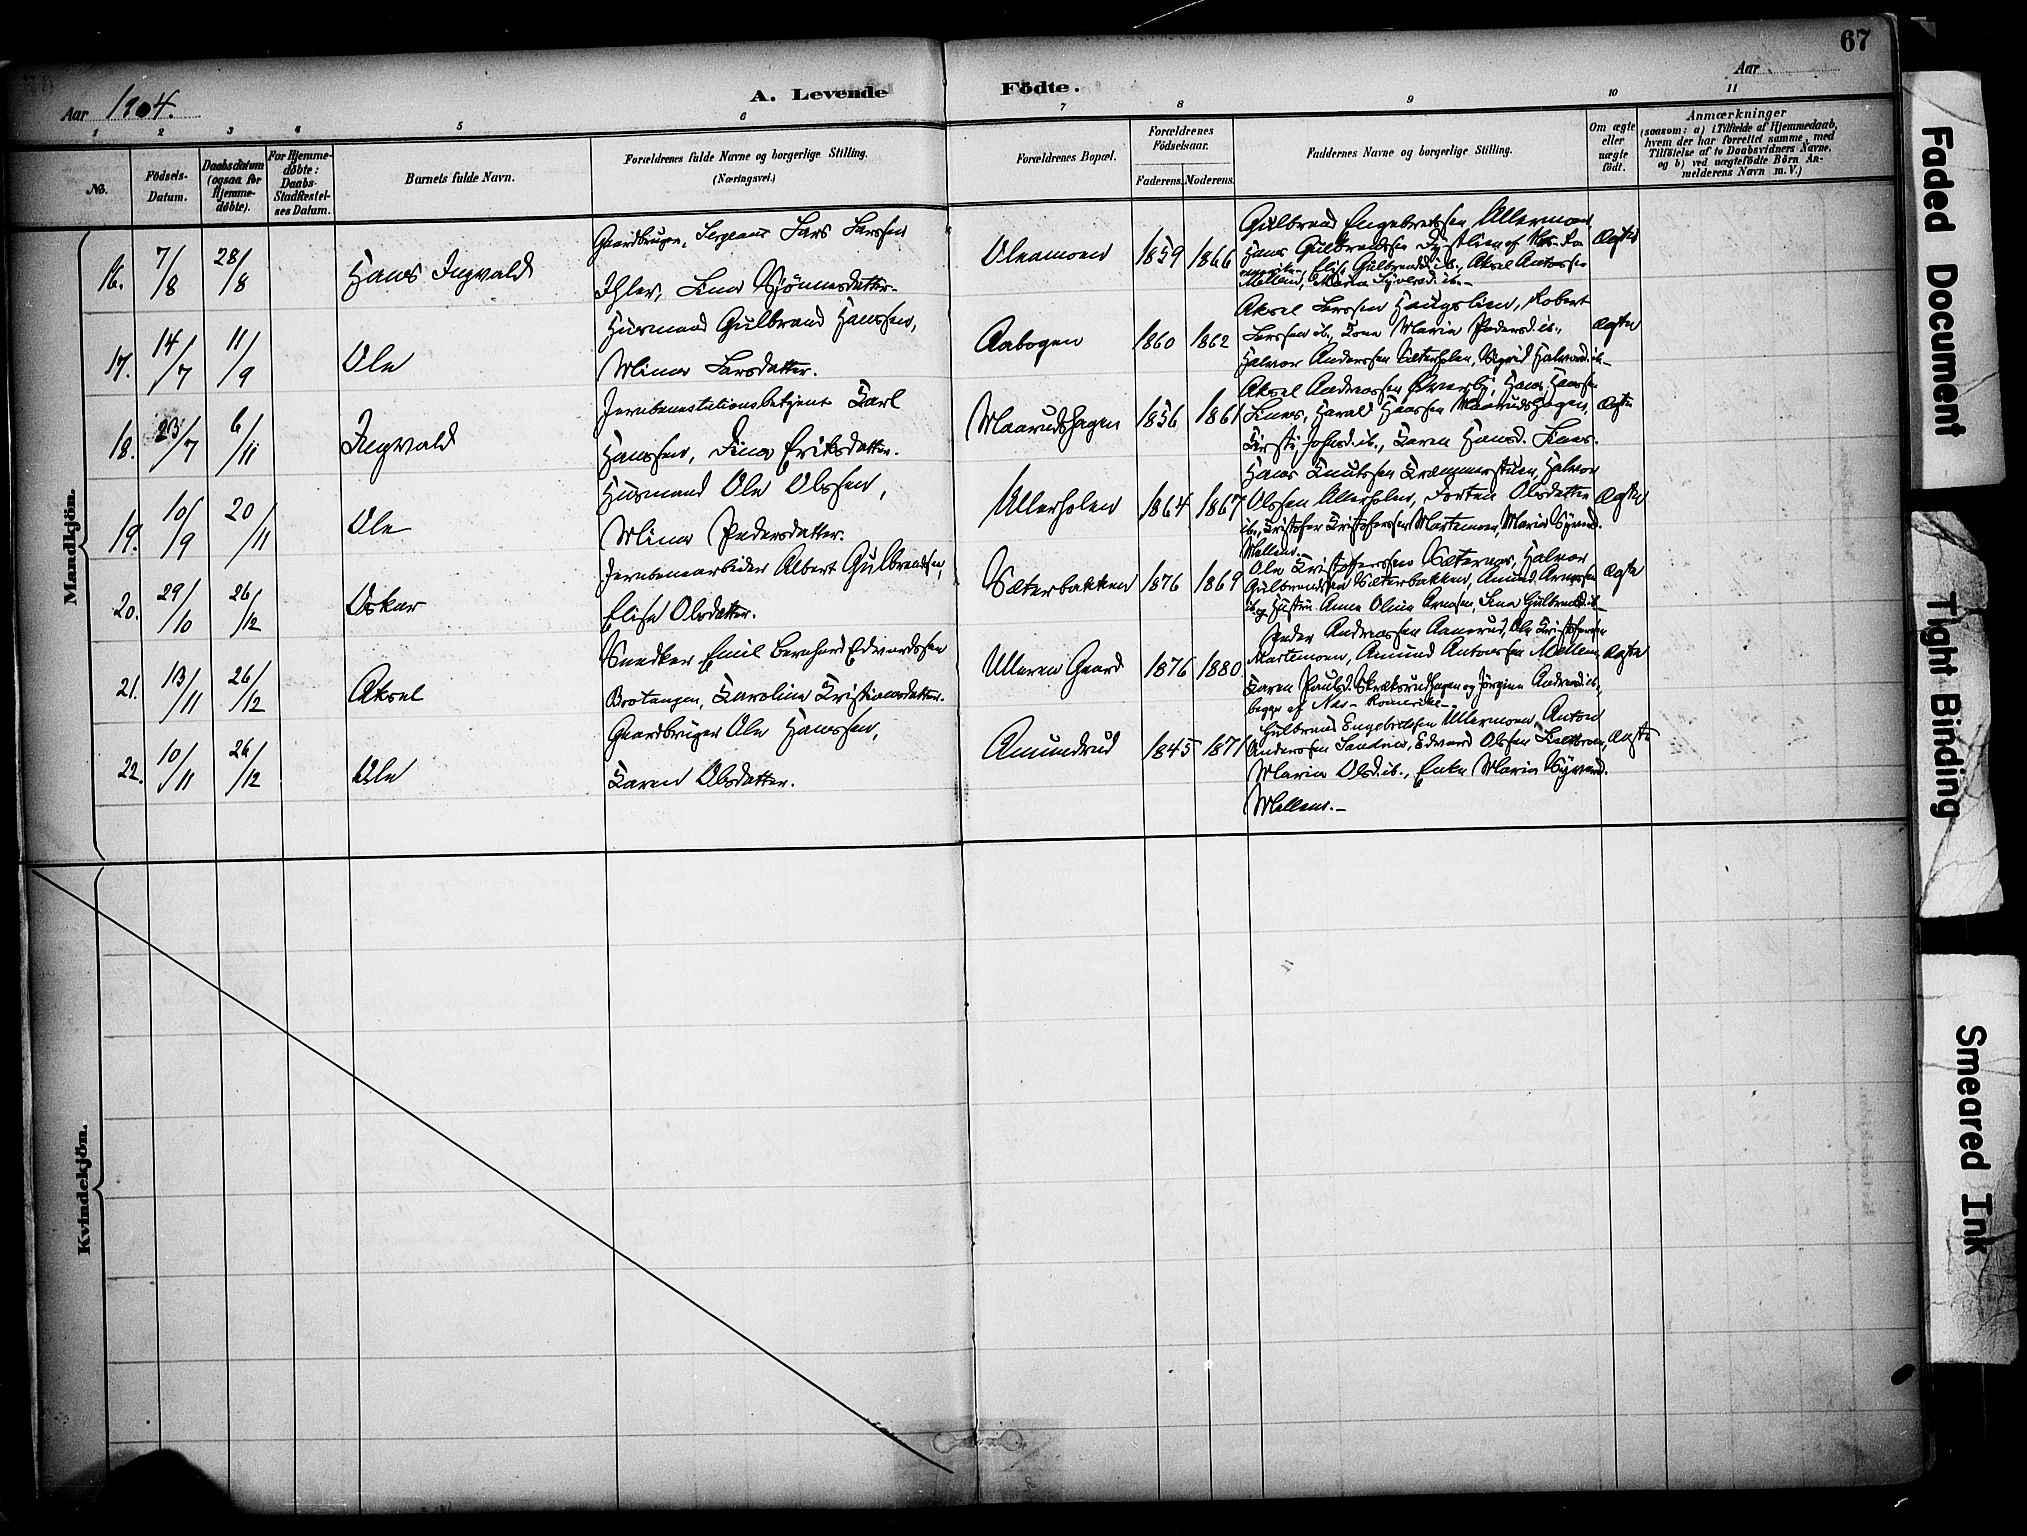 67
Aar 1904.
A. Levende Födte.
Aar
1 2 3 4 5 6 7 8 9 10 11
No.
Födsels-Datum.
Daabsdatum (ogsaa for Hjemme-döbte).
For Hjemme-döbte: Daabs-Stadfæstel-ses Datum.
Barnets fulde Navn.
Forældrenes fulde Navne og borgerlige Stilling.
(Næringsvei.)
Forældrenes Bopæl.
Forældrenes Födselsaar.
Faderens. Moderens.
Faddernes Navne og borgerlige Stilling.
Om ægte eller uægte födt.
Anmærkninger
(saasom: a) i Tilfælde af Hjemmedaab,
hvem der har forrettet samme, med
Tilföielse af to Daabsvidners Navne,
og b) ved uægtefödte Börn An-
melderens Navn m. V.)
Mandkjön.
16. 7/8 28/8 Hans Ingvald
Gaardbruger, Sergeant Lars Larssen
Ihler, Lina
Ulvamoen 1859 1866
Gulbrand Engebretssen Ullermoen,
Hans Gulbrandssen af Nes-Ro-
merike, Elise Gulbrandsd. ib., Aksel Antonssen
Mellem, Maria Syversd. ib.
Ægte
17. 14/7 11/9 Ole
Husmand Gulbrand Hanssen,
Mina Larsdatter.
Aabogen 1860 1862
Aksel Larssen Haugslien, Robert
Larssen ib., Lona Maria Pedersd. ib.,
Halvor Anderssen Sæterholen, Sigrid Halvorsd. ib.
Ægte
18. 23/7 6/11 Ingvald
Jernbanestationsbetjent Karl
Hanssen, Dina Eriksdatter.
Maarudshagen 1856 1861
Aksel Andreassen Øverby, Hans Hanssen
Linnes, Harald Hanssen Maarudshagen,
Kirsti Johnsd. ib., Karen Hansd. Linnes.
Ægte
19. 10/9 20/11 Ole
Husmand Ole Olssen,
Mina Pedersdatter.
Ullerholen 1864 1867
Hans Knutssen Kræmmerstuen, Halvor
Olssen Ullerholen, Torten Olsdatter
ib., Kristofer Kristoferssen Martemoen, Maria Syversd.
Mellem.
Ægte
20. 29/10 26/12 Oskar
Jernbanearbeider Albert Gulbrandsen,
Elise Olsdatter.
Sæterbakken 1876 1869
Ole Kristofferssen Sæternes, Halvor
Gulbrandsen Sæterbakken, Amund Arnessen
ib. og Hustru Anna Oline Arnesen, Lina Gulbrandsd. ib.
Ægte
21. 13/11 26/12 Aksel
Snedker Emil Bernhard Edvardssen
Brotangen, Karoline Kristiansdatter.
Ulleren Gaard 1876 1880
Peder Andreassen Aanerud, Ole Kristofersen
Martemoen, Amund Antonssen Mellem,
Karen Paulsd. Skræksrudhagen og Jørgine Andersd. ib.,
begge af Nes-Romerike.
Ægte
22. 10/11 26/12 Ole
Gaardbruger Ole Hanssen,
Karen Olsdatter.
Amundrud 1845 1871
Gulbrand Engebretssen Ullermoen, Anton
Anderssen Sandnes, Edvard Olssen
Maria Olsd. ib., Enke Maria Syversd.
Mellem.
Ægte
Kvindekjön.
Faded Document
Tight Binding
Smeared Ink